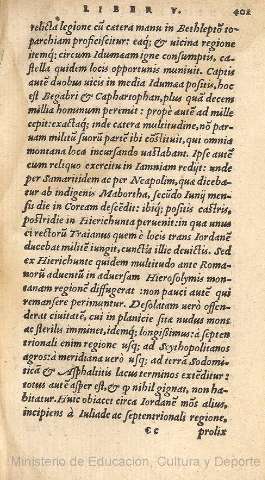 LIBER V. 402
relicta legione cũ cætera manu in Bethlepto to-
parchiam proficiscitur: eaq; & uicina regione
itemq; circum Idumæam igne consumptis, ca-
stella quidem locis opportunis muniuit. Captis
autẽ duobus uicis in media Idumæa positis, hoc
est Begabri & Caphartophan, plus quã decem
millia hominum peremit: propè autẽ ad mille
cepit: exactaq; inde cætera multitudine, nõ par-
uam militũ suorũ partẽ ibi cõstituit, qui omnia
montana loca incursando uastabant. Ipse autẽ
cum reliquo exercitu in Iamniam redijt: unde
per Samaritidem ac per Neapolim, quæ diceba-
tur ab indigenis Mabortha, secũdo Iunij men-
sis die in Coream descẽdit: ibiq; positis castris,
postridie in Hierichunta peruenit: in qua unus
ei rectorũ Traianus quem è locis trans Iordanẽ
ducebat militẽ iungit, cunctis illic deuictis. Sed
ex Hierichunte quidem multitudo ante Roma-
norũ aduentũ in aduersam Hierosolymis mon-
tanam regionẽ diffugerat: non pauci autẽ qui
remansere perimuntur. Desolatam uerò offen-
derat ciuitatẽ, cui in planicie sitæ nudus mons
ac sterilis imminet, idemq; longissimus: à septen
trionali enim regione usq; ad Scythopolitanos
agros: à meridiana uerò usq; ad terrã Sodomi-
ticã & Asphaltitis lacus terminos extẽditur:
totus autẽ asper est, & q̃ nihil gignat, non ha-
bitatur. Huic obiacet circa Iordanẽ mõs alius,
incipiens à Iuliade ac septentrionali regione,
eε prolix
Ministerio de Educación, Cultura y Deporte